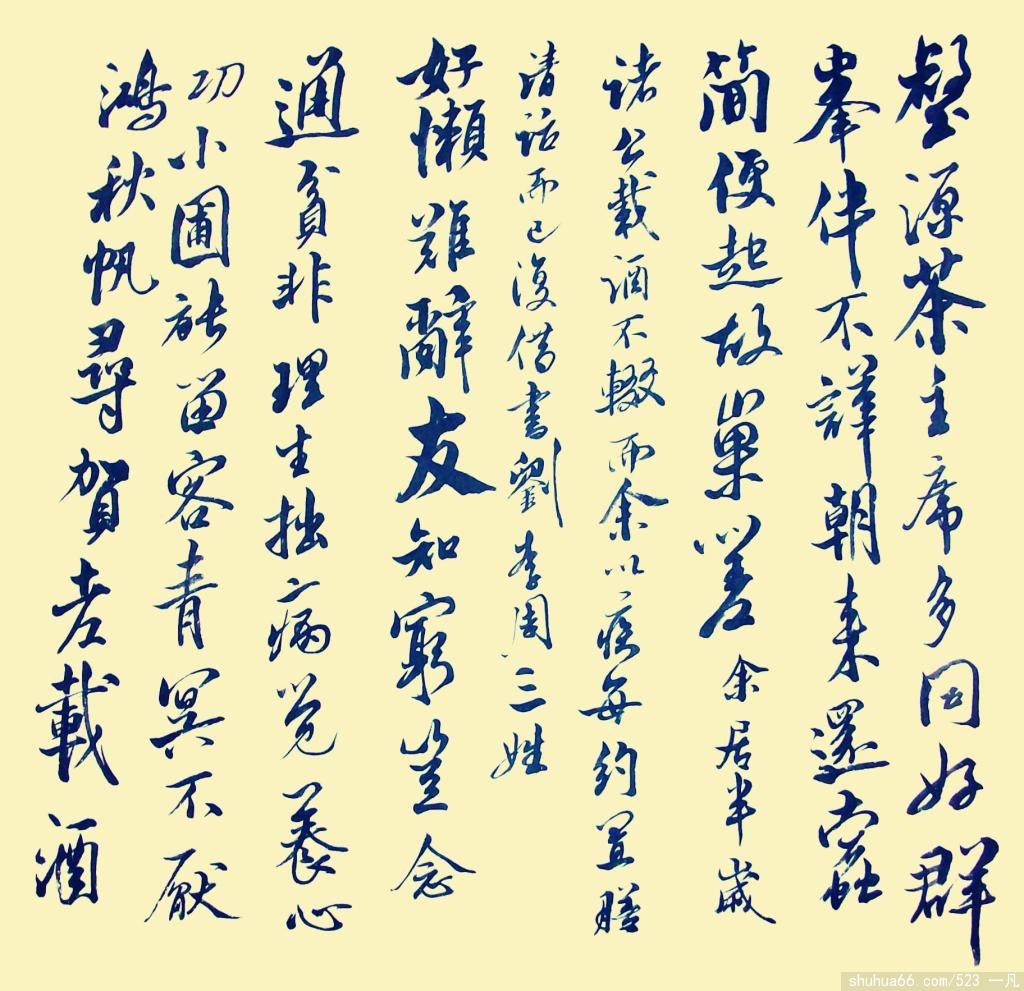 壑源茶主席多同好群
峯伴不譁朝来還蠹
簡便起故巢嗟余居半歲
諸公載酒不輟而余以疾每約置膳
清話而已復借書劉李周三姓
好懶難辭友知窮豈念
通貧非理生拙病覺養心
功小圃能留客青冥不厭
鴻秋帆尋賀老載酒
shuhua66.com/523 一凡